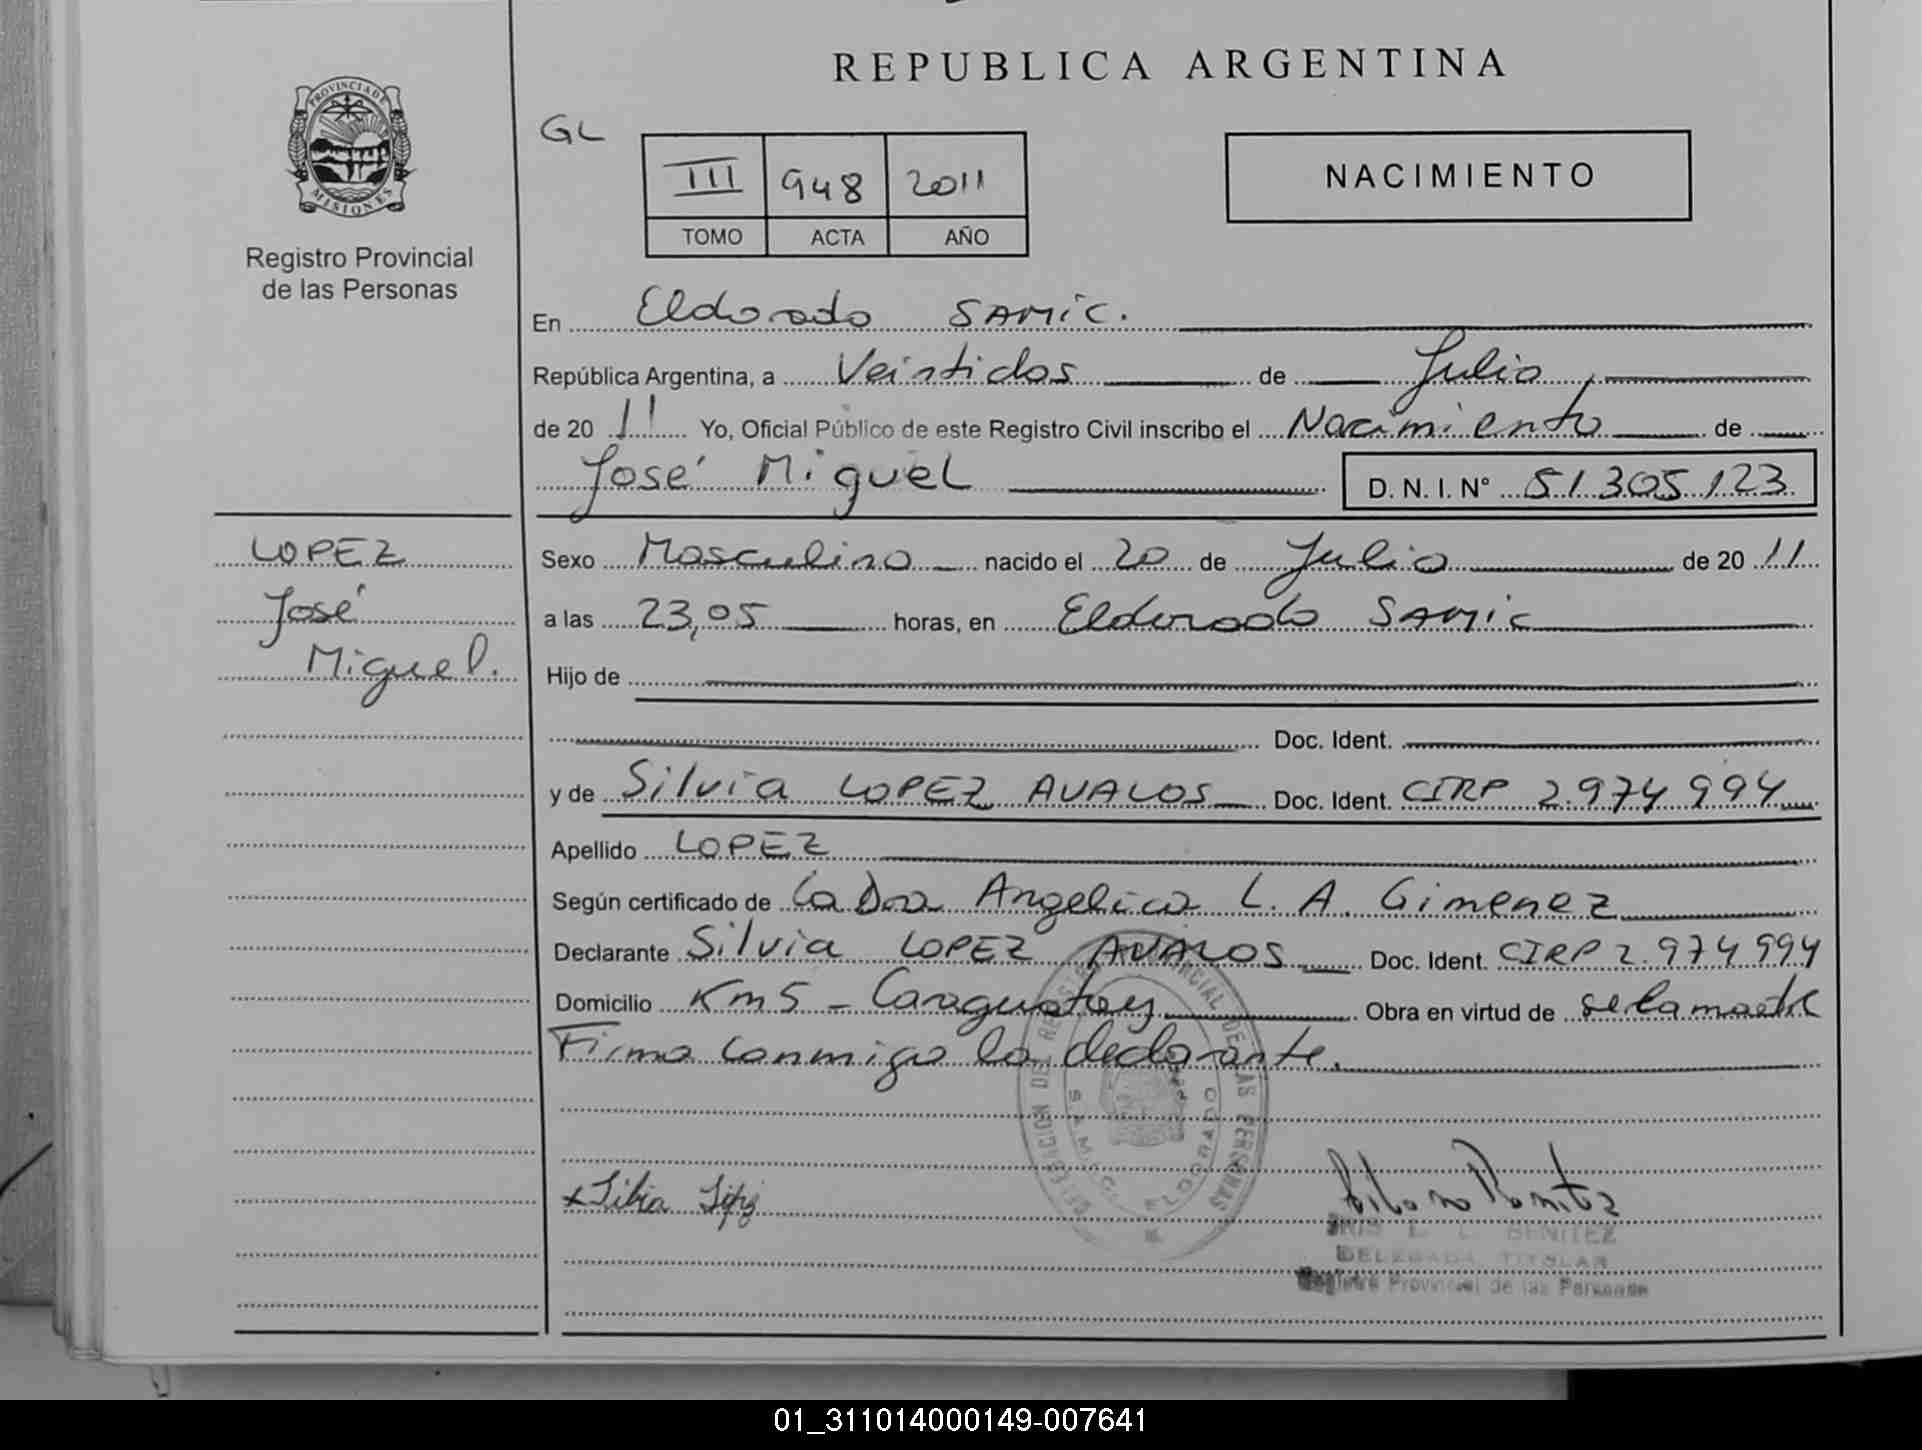 REPUBLICA ARGENTINA
PROVINCIA DE
MISIONES
Registro Provincial
de las Personas
GL
III 948 2011
TOMO ACTA AÑO
NACIMIENTO
En Eldorado SAMIC.
República Argentina, a Veintidos de Julio
de 20 11 Yo, Oficial Público de este Registro Civil inscribo el Nacimiento de
José Miguel D. N. I. N° 51.305.123
LOPEZ
José
Miguel.
Sexo Masculino nacido el 20 de Julio de 20 11
a las 23,05 horas, en Eldorado SAMIC
Hijo de
Doc. Ident.
y de Silvia LOPEZ AVALOS Doc. Ident. CIRP 2.974994
Apellido LOPEZ
Según certificado de La Dra Angelica L. A. Gimenez
Declarante Silvia LOPEZ AVALOS Doc. Ident. CIRP 2.974994
Domicilio Km5 - Caraguatay Obra en virtud de ser la madre
Firma conmigo la declarante.
DELEGACION DEL REGISTRO PROVINCIAL DE LAS PERSONAS
S.A.M.I.C. ELDORADO
x Silvia López
IRIS L. BENITEZ
DELEGADA TITULAR
Registro Provincial de las Personas
01_311014000149-007641